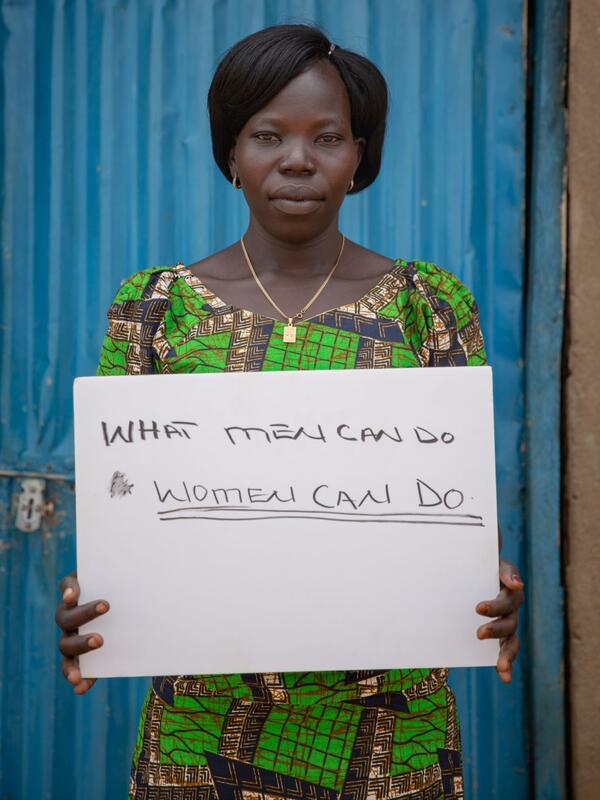 WHAT MEN CAN DO
WOMEN CAN DO.